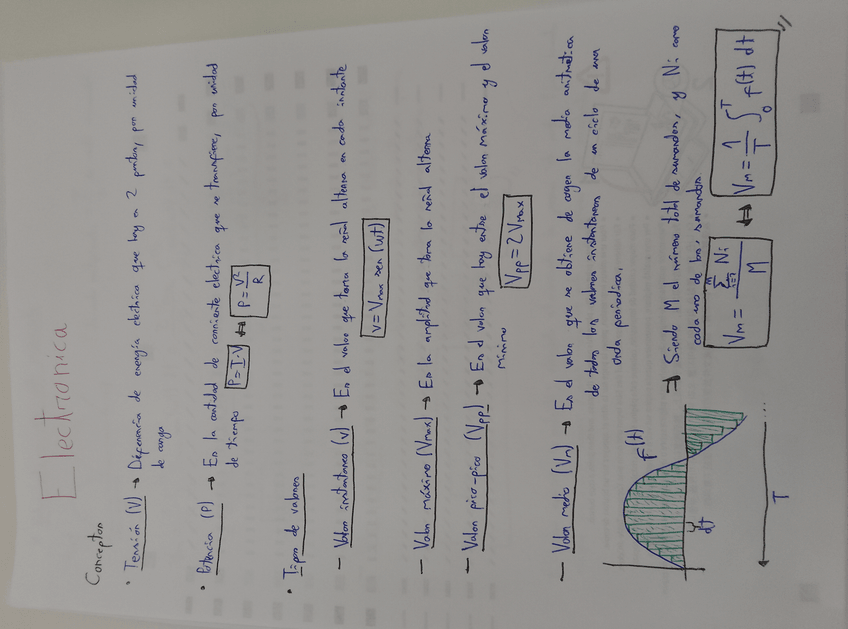 Electronica
Conceptos
• Tensión (V) → Diferencia de energía eléctrica que hay en 2 puntos, por unidad
de carga
• Potencia (P) → Es la cantidad de corriente eléctrica que se transfiere, por unidad
de tiempo P = I · V ⇔ P = V²/R
• Tipos de valores
– Valor instantáneo (v) → Es el valor que toma la señal alterna en cada instante
v = Vmax sen (wt)
– Valor máximo (Vmax) → Es la amplitud que toma la señal alterna
– Valor pico-pico (Vpp) → Es el valor que hay entre el valor máximo y el valor
mínimo
Vpp = 2 Vmax
– Valor medio (Vm) → Es el valor que se obtiene de cagen la media aritmética
de todos los valores instantáneos de un ciclo de una
onda periodica.
f(t)
dt
T
⇒ Siendo M el número total de sumandos, y Ni como
cada uno de los sumandos
Vm = ∑ᵢ₌₁ᴹ Ni / M ⇔ Vm = 1/T ∫₀ᵀ f(t) dt